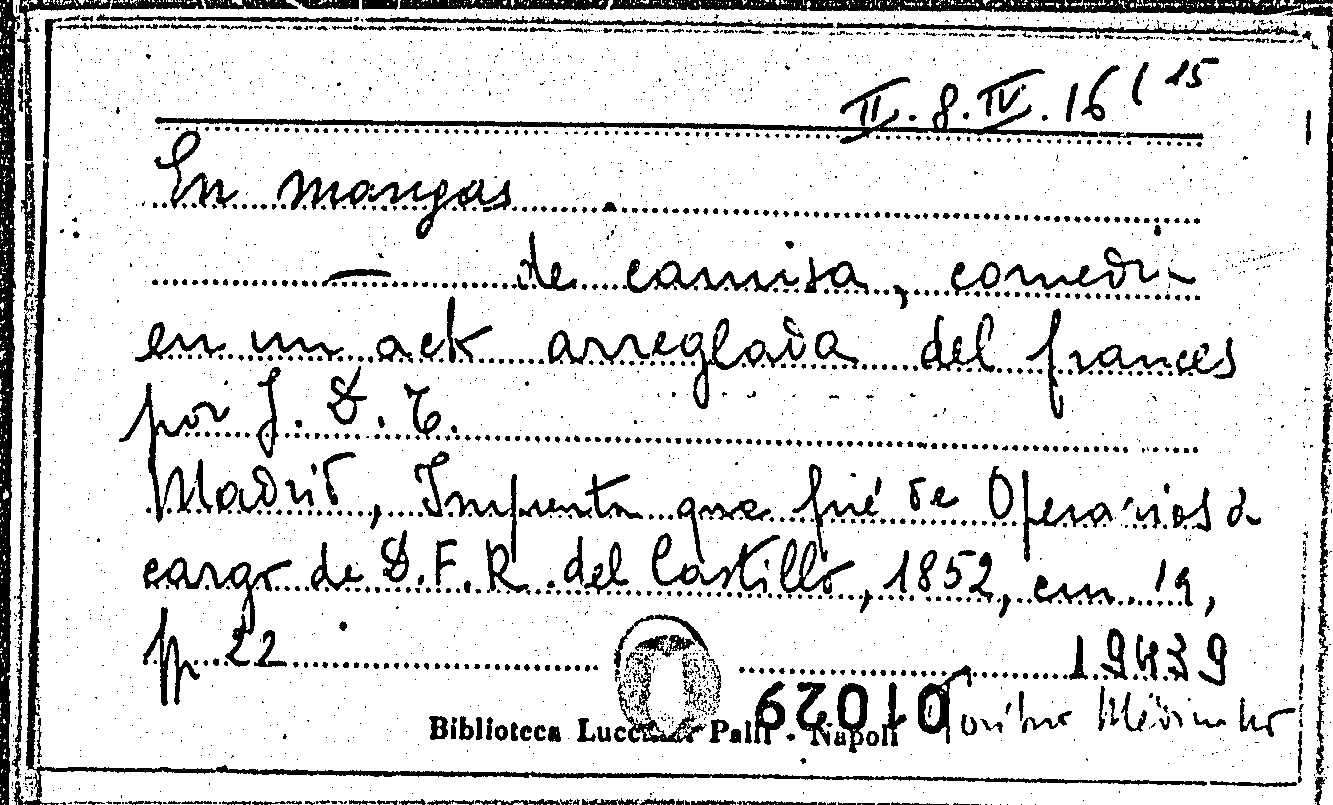 II.8.IV.16(15
En mangas
— de camisa, comedia
en un acto arreglada del frances
por J. D. T.
Madrid, Imprenta que fué de Operarios a
cargo de D.F.R. del Castillo, 1852, cm. 19,
pp. 22
19439
01029
Biblioteca Lucchesi Palli - Napoli